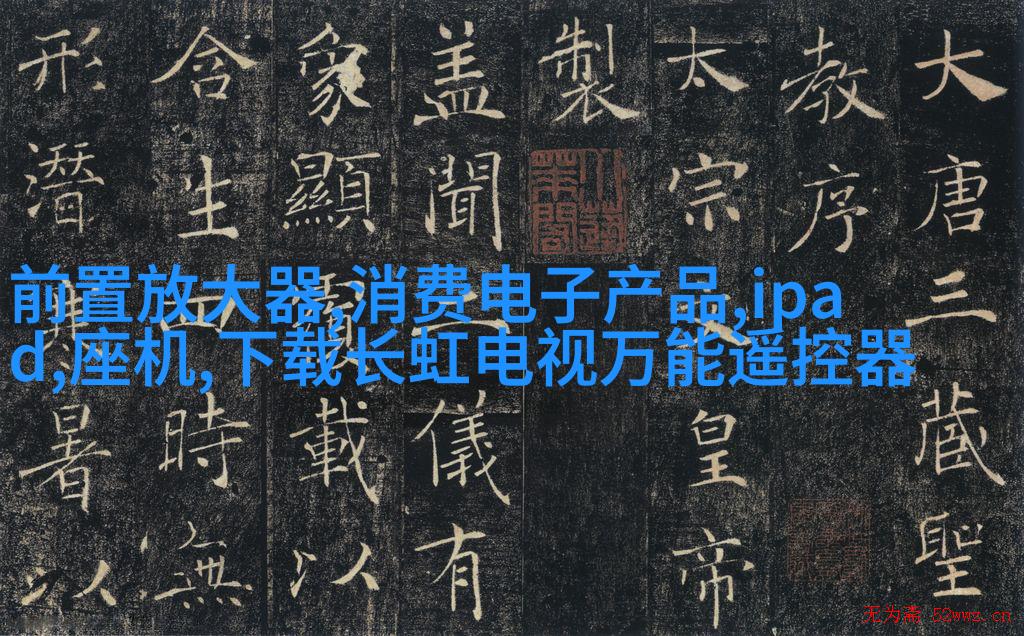 大唐三藏聖
教序
太宗文皇帝
製
盖聞二儀有
象顯載以
含生四時無
形潛暑以
前置放大器,消费电子产品,ipa
d,座机,下载长虹电视万能遥控器
无为斋 52wwz.cn